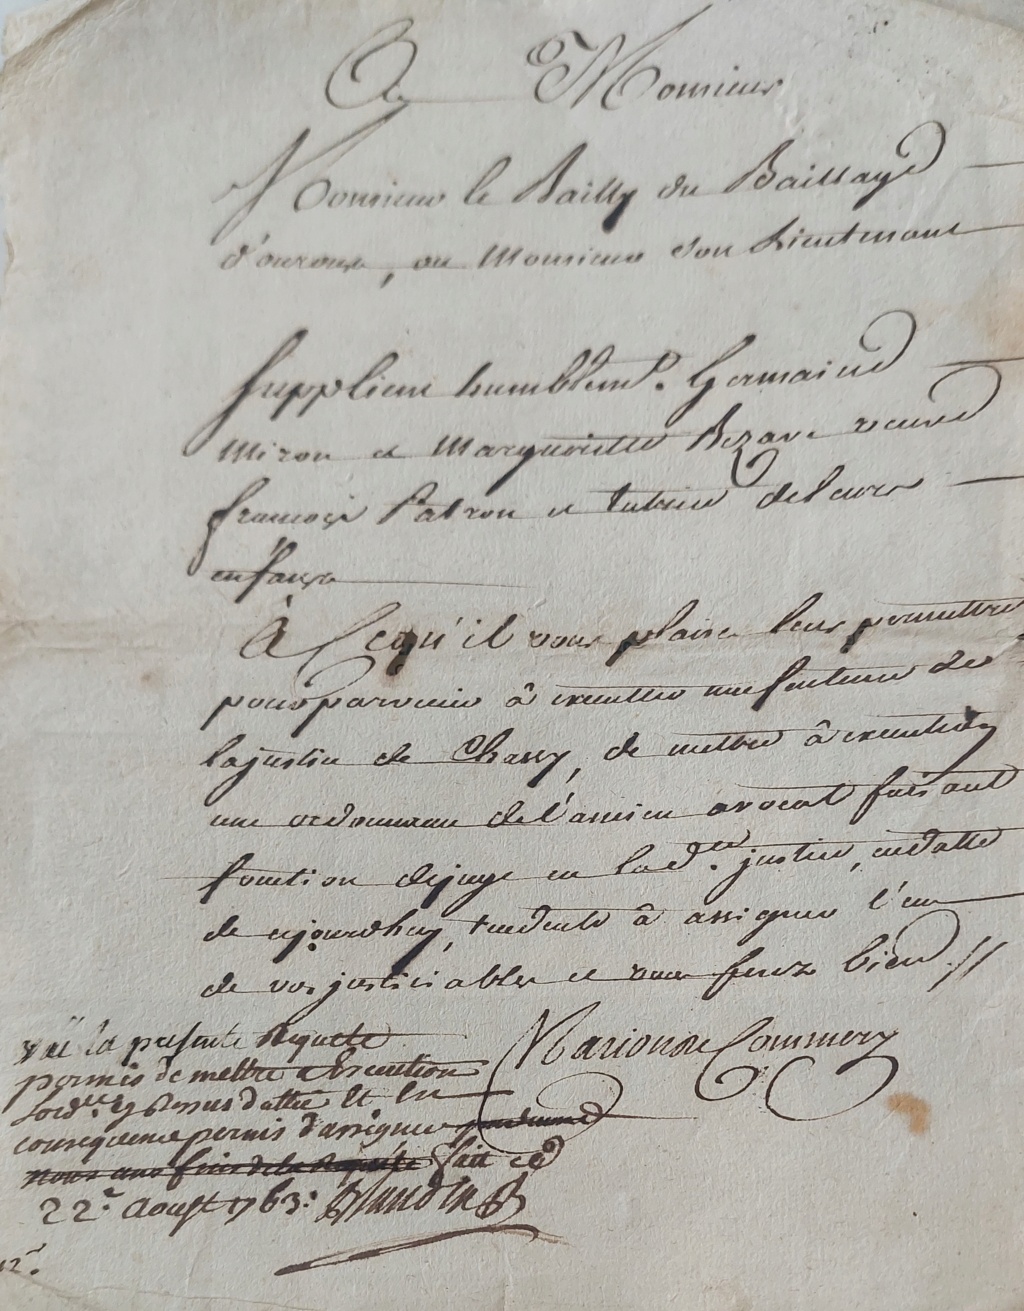 A Monsieur
Monsieur le Bailly du Baillage
d'ouroux, ou Monsieur son Lieutenant
Supplient humblemt. Germaine
Miron et Margueritte Bezave veuve
françois Patron et tutrice de leurs
enfans
À Ce qu'il vous plaise leur permettre
pour parvenir â executter une sentence de
la justice de Chassy, de mettre â execution
une ordonnance de l'ancien avocat faisant
fonction de juge en lad.te justice, en datte
de ajourdhuy, tendente â assigner l'un
de vos justiciables et vous ferez bien //
Marion de Commery
vüe la presente Requete
permis de mettre a Execution
lord.ce cy dessus dattée Et En
consequence permis d'assigner
nous aux fins de la Requeste fait ce
22.e Aoust 1763.